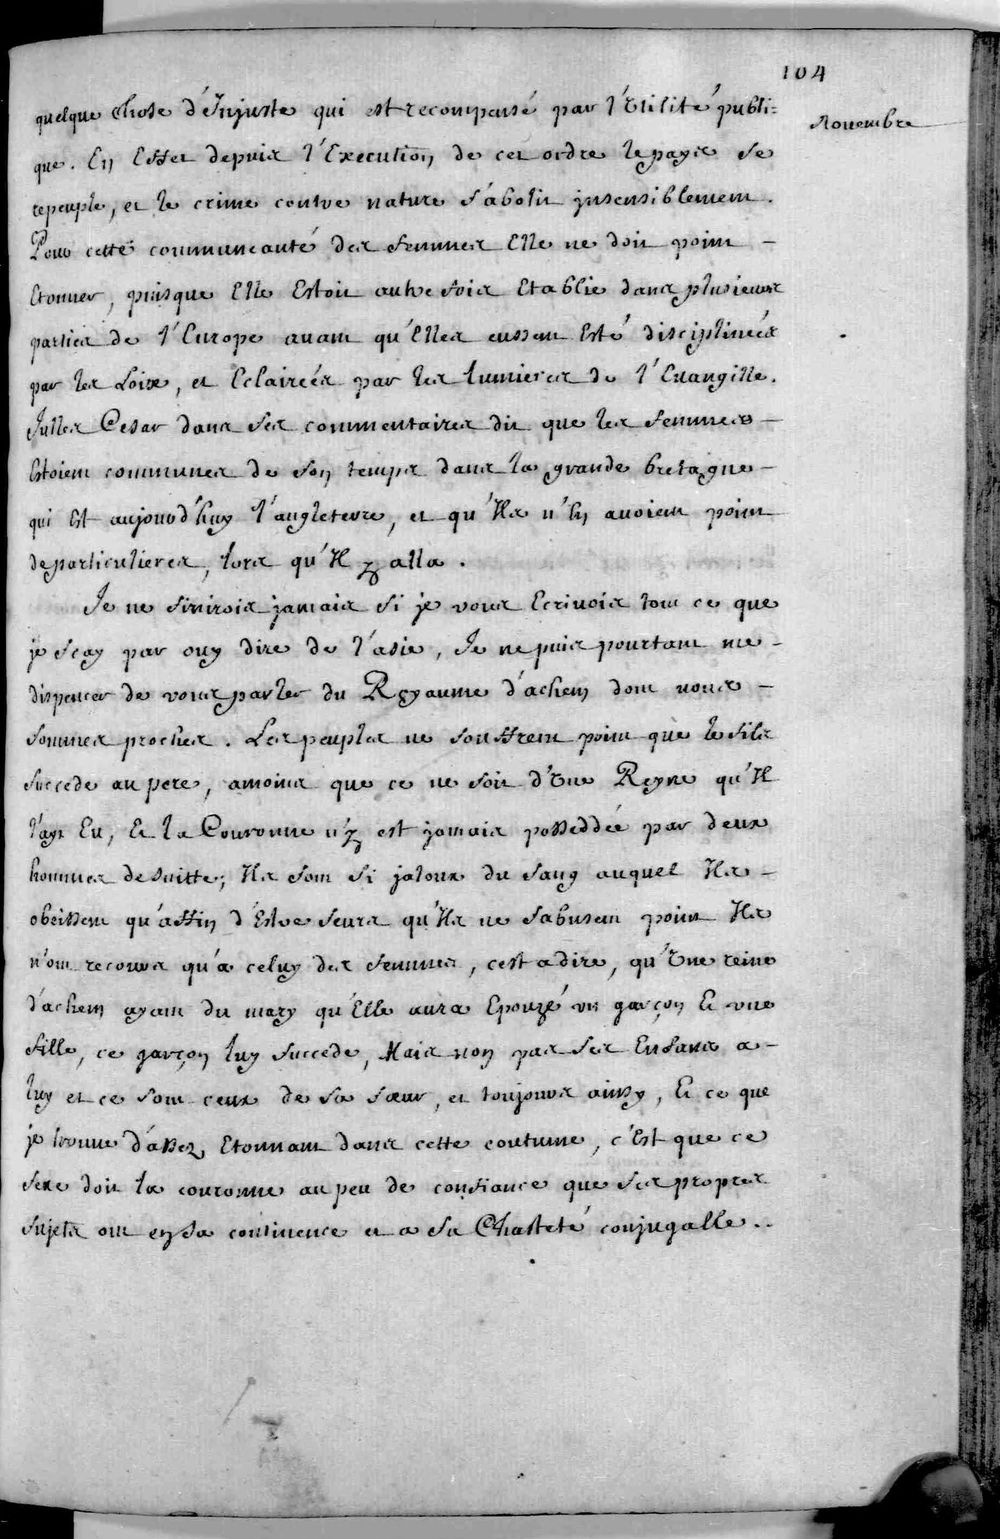 104
Novembre
quelque chose d'Injuste qui est recompensé par l'Utilité publi=
que. En Effet depuis l'Execution de cet ordre le pays se
repeuple, et le crime contre nature s'abolit jnsensiblement.
Pour cette communeauté des femmes Elle ne doit point –
Etonner, puisque Elle Estoit autre fois Etablie dans plusieurs
parties de l'Europe avant qu'Elles eussent Esté disciplinées
par les Loix, et Eclairées par les lumieres de l'Evangille.
Julles Cesar dans ses commentaires dit que les femmes –
Estoient communes de son temps dans la grande bretagne –
qui Est aujourd'huy l'angleterre, et qu'Ils n'En avoient point
de particulieres, lors qu'Il y alla.
Je ne finirois jamais si je vous Ecrivois tout ce que
je scay par ouy dire de l'asie, Je ne puis pourtant me –
dispencer de vous parler du Royaume d'achem dont nous –
sommes proches. Les peuples ne souffrent point que le fils
succede au pere, amoins que ce ne soit d'Une Reyne qu'Il
l'ayt Eu, Et la Couronne n'y est jamais posseddée par deux
hommes de suitte; Ils sont si jaloux du sang auquel Ils –
obeissent qu'affin d'Estre seurs qu'Ils ne s'abusent point Ils
n'ont recours qu'a celuy des femmes, cest a dire, qu'Une reine
d'achem ayant du mary qu'Elle aura Epouzé un garçon Et une
fille, ce garçon luy succede, Mais non pas ses Enfans a –
luy et ce sont ceux de sa sœur, et toujours ainsy, Et ce que
je trouve d'assez Etonnant dans cette coutume, c'Est que ce
sexe doit la couronne au peu de confiance que ses propres
sujets ont en sa continence et a sa Chasteté conjugalle..